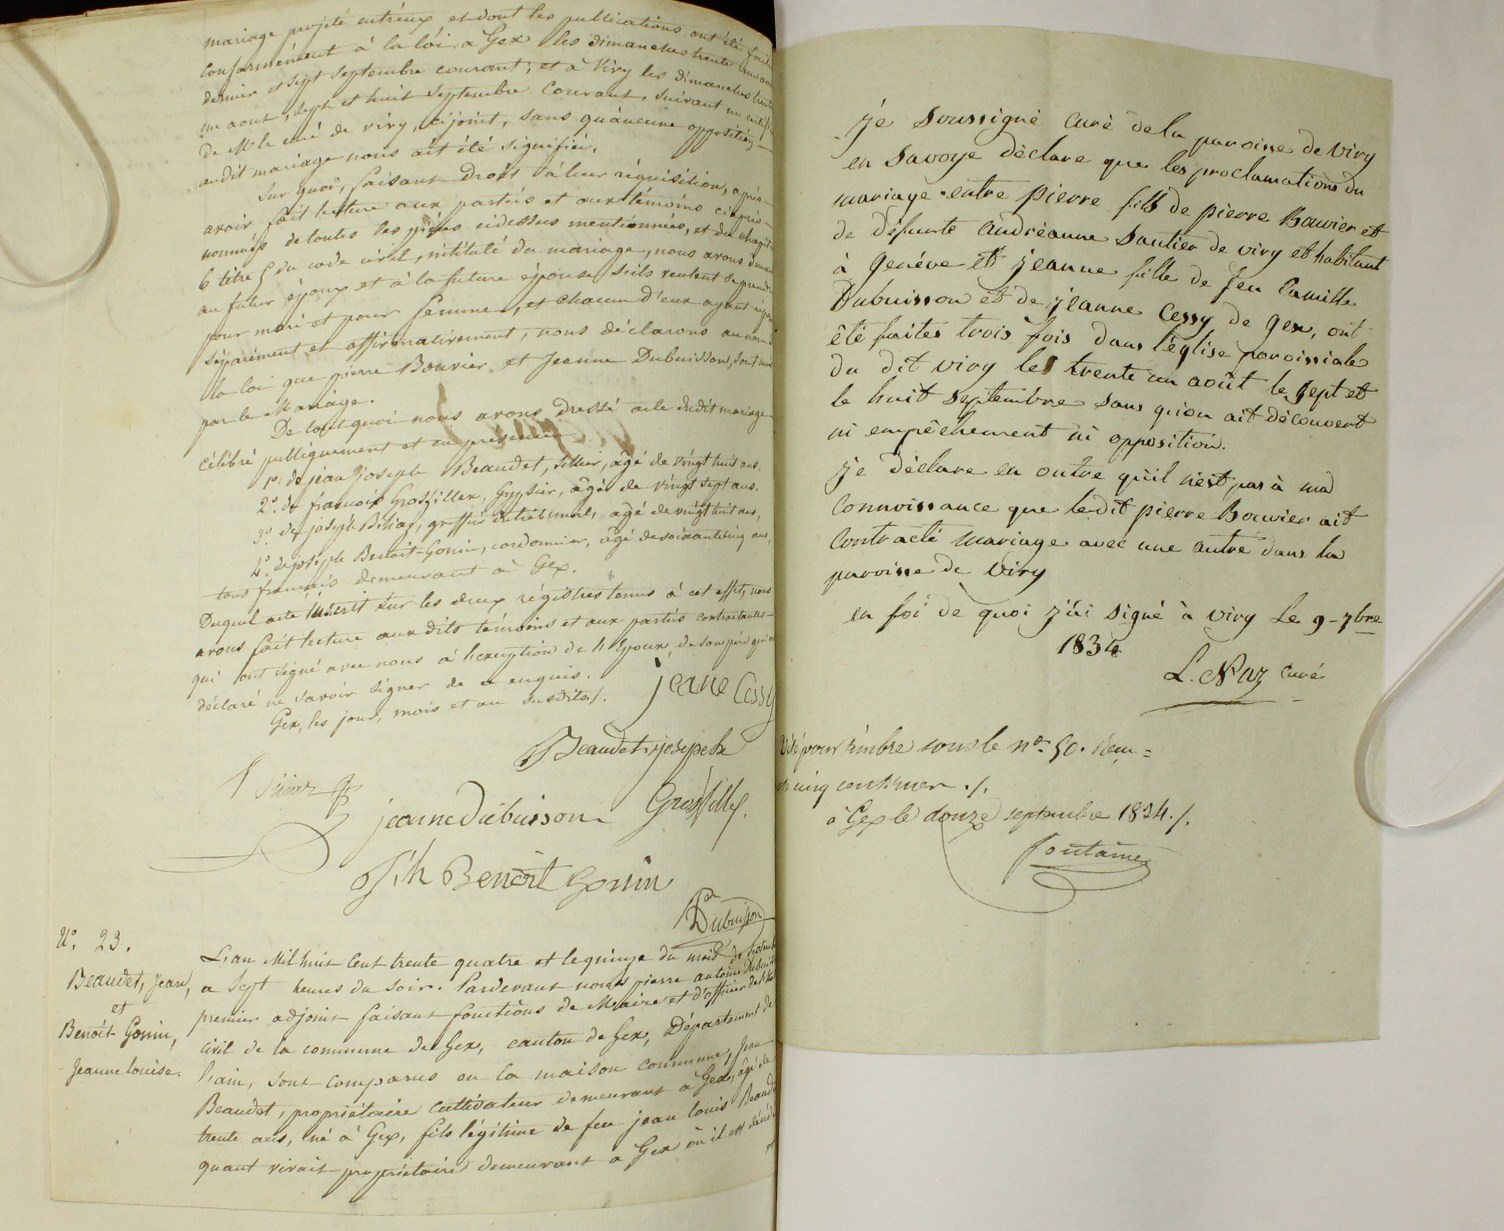 mariage projeté entr'eux, et dont les publications ont été faites
conformément à la loi à Gex les dimanches trente un août
dernier et sept septembre courant, et à Viry les dimanches trente
un aout, sept et huit septembre courant, suivant un certificat
de Mr le curé de viry, cijoint, sans qu'aucune opposition
audit mariage nous ait été signifiée.
Sur quoi, faisant droit à leur réquisition, après
avoir fait lecture aux parties et aux témoins ci après
nommés de toutes les pièces cidessus mentionnées, et du chapitre
6 titre 5 du code civil, intitulé du mariage, nous avons demandé
au futur époux et à la future épouse s'ils veulent se prendre
pour mari et pour femme, et chacun d'eux ayant répondu
séparément et affirmativement, nous déclarons au nom de
la loi que pierre Bouvier et Jeanne Dubuisson, sont unis
par le Mariage.
De tout quoi nous avons dressé acte dudit mariage
célébré publiquement et en présence
1º. de jean joseph Beaudet, sellier, âgé de vingt huit ans.
2º. de francois Grosfillex, Gypsier, âgé de vingt sept ans.
3º. de joseph Béliaz, greffier du tribunal, âgé de vingt huit ans,
4º. de joseph Benoit-Gonin, cordonnier, âgé de soixante cinq ans,
tous français demeurant à Gex.
Duquel acte inscrit sur les deux régistres tenus à cet effet, nous
avons fait lecture aux dits témoins et aux parties contractantes
qui ont signé avec nous à l'exception de l'époux, de son père qui ont
déclaré ne savoir signer de ce enquis.
Gex, les jour, mois et an susdits /.
jeane Cessy
Beaudet joseph
jeanne Dubuisson
Grosfillex.
Jh Benoit Gonin
Dubuisson
Nº. 23.
Beaudet, Jean,
et
Benoit Gonin,
Jeanne louise.
L'an Mil huit Cent trente quatre et le quinze du mois de septembre
a Sept heures du soir. Pardevant nous pierre antoine Dubuisson
premier adjoint faisant fonctions de Maire et d'officier de l'état
civil de la commune de Gex, canton de Gex, Département de
l'ain, sont comparus en la maison commune, Jean
Beaudet, propriétaire cultivateur demeurant à Gex, âgé de
trente ans, né à Gex, fils légitime de feu jean louis Beaudet
quant vivait propriétaire demeurant a Gex où il est décédé
je Soussigné curé de la paroisse de viry
en Savoye déclare que les proclamations du
mariage entre pierre fils de pierre Bouvier et
de défunte andréanne Sautier de viry et habitant
à genéve et jeanne fille de feu Camille
Dubuisson et de jeanne Cessy de gex, ont
été faites trois fois dans l'église paroissiale
du dit viry le trente un août le sept et
le huit septembre sans qu'on ait découvert
ni empêchement ni opposition.
je déclare en outre qu'il n'est pas à ma
connoissance que ledit pierre Bouvier ait
contracté mariage avec une autre dans la
paroisse de Viry
en foi de quoi j'ai signé à viry Le 9 7bre
1834
L. Naz curé
Visé pour timbre sous le nº. 50.
cinq centimes ./.
à Gex le douze septembre 1834./.
fontaine